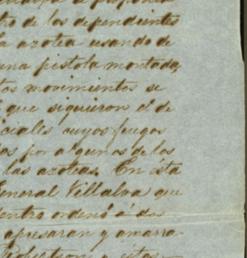 de los dependientes
la azotea usando de
una pistola montada,
tos movimientos se
que siguieron el de
ciales cuyos fuegos
por algunos de los
las azoteas. En ésta
General Villalva que
entra ordenó á dos
apresaran y amarra-